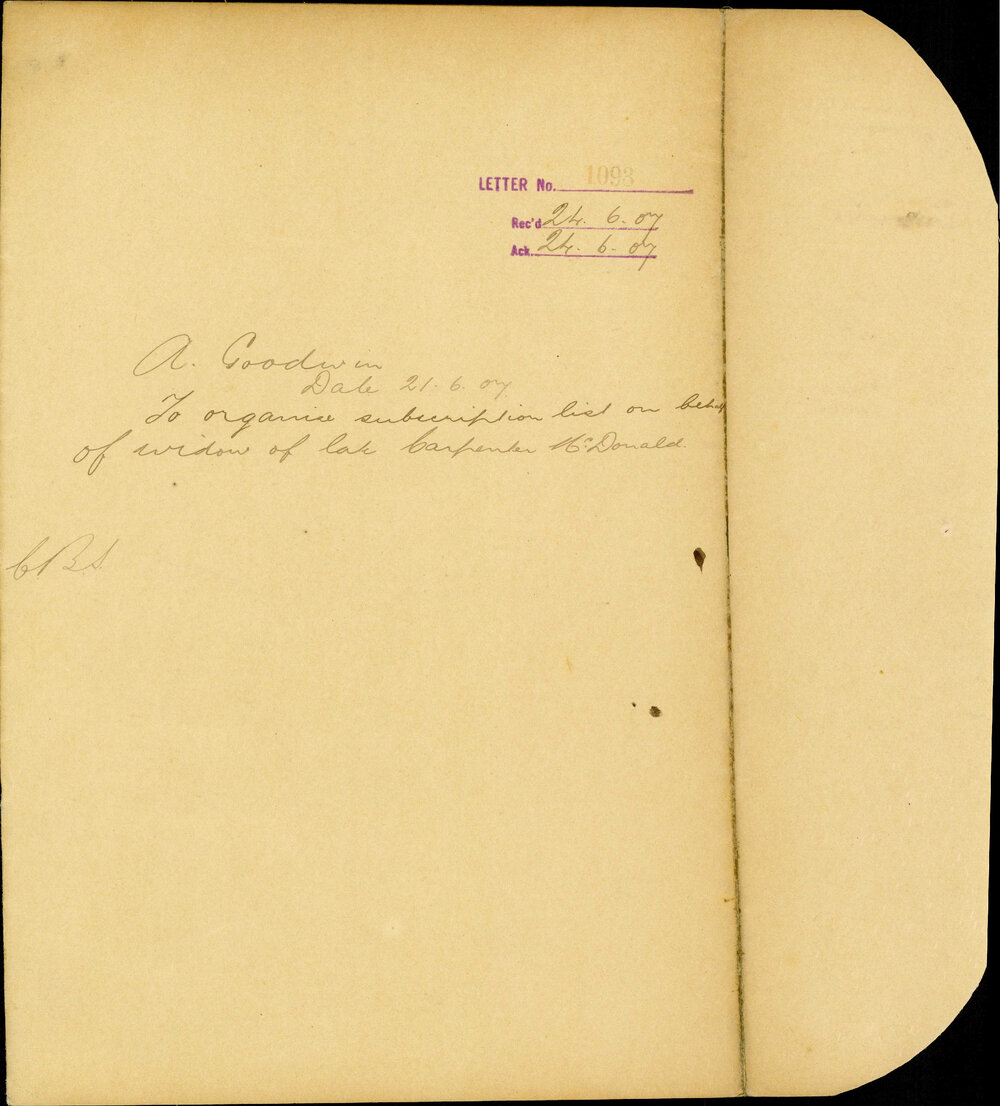 LETTER No. 1093
Rec'd 24. 6. 07
Ack. 24. 6. 07
A. Goodwin
Date 21. 6. 07
To organise subscription list on behalf
of widow of late Carpenter McDonald.
CBS